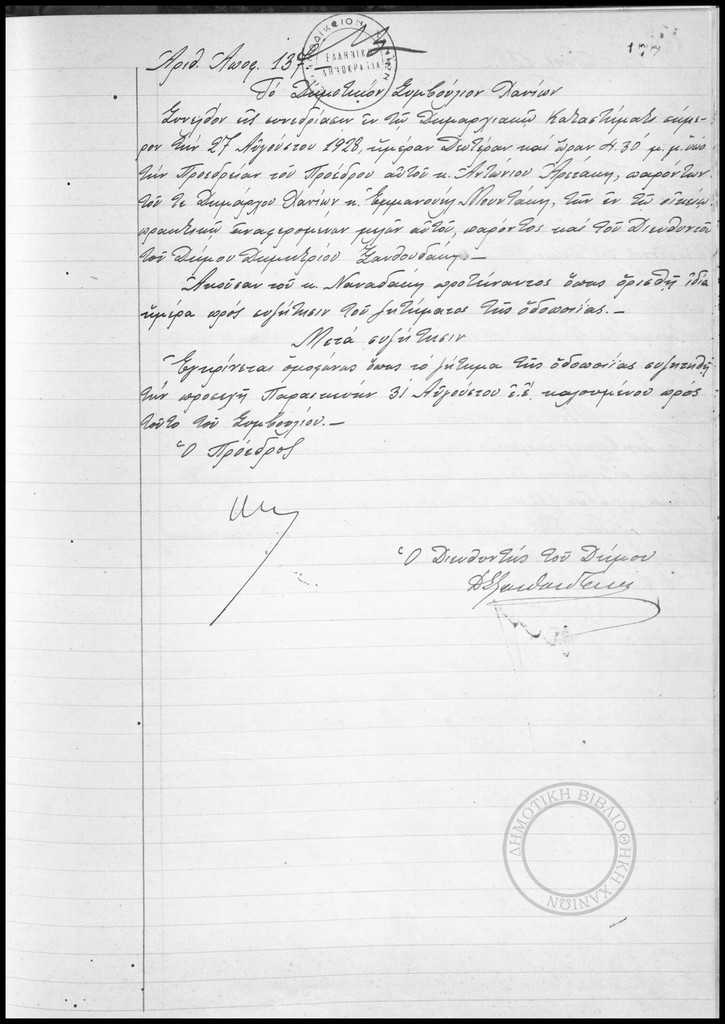 Ἀριθ. Ἀποφ. 137
ΕΛΛΗΝΙΚΗ
ΔΗΜΟΚΡΑΤΙΑ
Τό Δημοτικόν Συμβούλιον Χανίων
Συνελθόν εἰς συνεδρίασιν ἐν τῷ Δημαρχιακῷ Καταστήματι σήμε-
ρον τήν 27 Αὐγούστου 1928, ἡμέραν Δευτέραν καί ὥραν 4.30' μ.μ. ὑπό
τήν Προεδρείαν τοῦ Προέδρου αὐτοῦ κ. Ἀντωνίου, παρόντων
τοῦ τε Δημάρχου Χανίων κ. Ἐμμανουήλ Μουντάκη, τῶν ἐν τῷ οἰκείῳ
πρακτικῷ ἀναφερομένων μελῶν αὐτοῦ, παρόντος καί τοῦ Διευθυντοῦ
τοῦ Δήμου Δημητρίου Ξανθουδάκη.—
Ἀκοῦσαν τοῦ κ. Ναναδάκη προτείναντος ὅπως ὁρισθῇ ἰδία
ἡμέρα πρός συζήτησιν τοῦ ζητήματος τῆς ὁδοποιΐας.—
Μετά συζήτησιν
Ἐγκρίνεται ὁμοφώνως ὅπως τό ζήτημα τῆς ὁδοποιΐας συζητηθῇ
τήν προσεχῆ Παρασκευήν 31 Αὐγούστου ἐ.ἔ. καλουμένου πρός
τοῦτο τοῦ Συμβουλίου.—
Ὁ Πρόεδρος
Ὁ Διευθυντής τοῦ Δήμου
ΔΗΜΟΤΙΚΗ ΒΙΒΛΙΟΘΗΚΗ ΧΑΝΙΩΝ